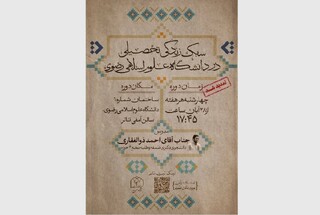 سبک زندگی تحصیلی
در دانشگاه علوم اسلامی رضوی
تمدید شد
زمان دوره
چهارشنبه هر هفته
از ۲ آبان ساعت
۱۷:۴۵
مکان دوره
ساختمان شماره ۱
دانشگاه علوم اسلامی رضوی
سالن آمفی تئاتر
جناب آقای احمد ذوالفقاری